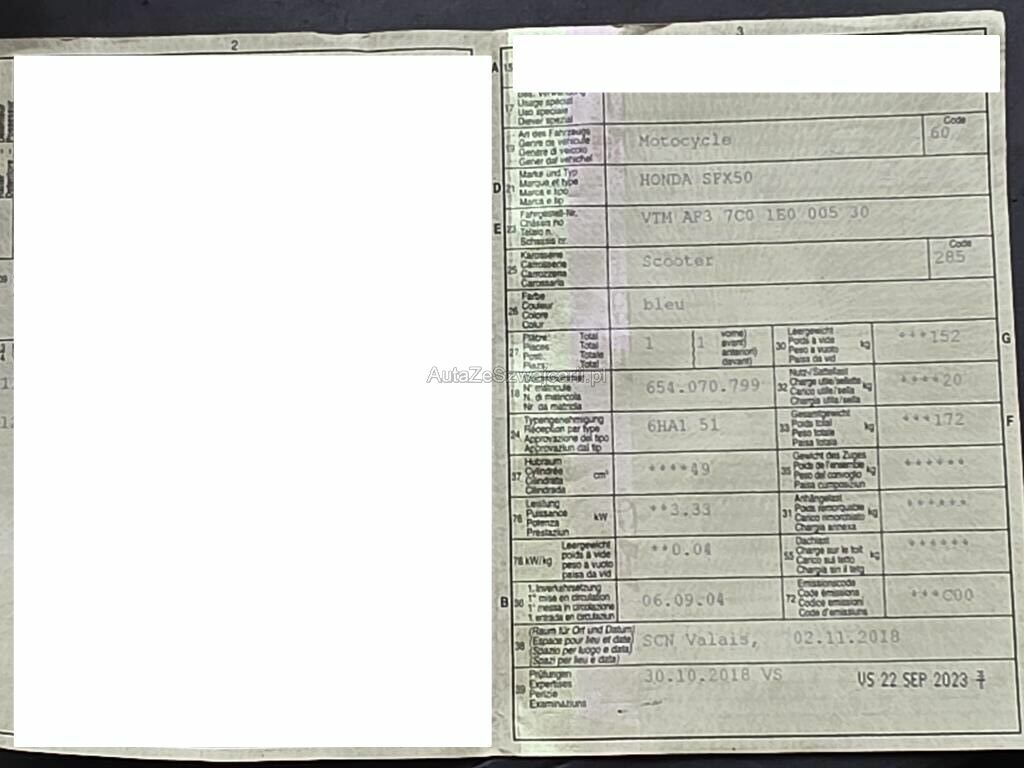 2
3
A 15
17 Usage spécial
Uso speciale
Diever spezial
19 Art des Fahrzeugs
Genre de véhicule
Genere di veicolo
Gener dal vehichel
Motocycle
Code
60
D 21 Marke und Typ
Marque et type
Marca e tipo
Marca e tip
HONDA SFX50
E 23 Fahrgestell-Nr.
Châssis no
Telaio n.
Schassis nr.
VTM AF3 7C0 1E0 005 30
25 Karosserie
Carrosserie
Carrozzeria
Carossaria
Scooter
Code
285
26 Farbe
Couleur
Colore
Colur
bleu
27 Plätze: Total
Places: Total
Posti: Totale
Plazs: Total
1
( 1
vorne)
avant)
anteriori)
davant)
30 Leergewicht
Poids à vide
Peso a vuoto
Paisa da vid
kg
***152
G
AutaZeSzwajcarii.pl
18
N° matricule
N. di matricola
Nr. da matricla
654.070.799
32 Nutz-/Sattellast
Charge utile/sellette
Carico utile/sella
Chargia utila/sella
kg
****20
24 Typengenehmigung
Réception par type
Approvazione del tipo
Approvaziun dal tip
6HA1 51
33 Gesamtgewicht
Poids total
Peso totale
Paisa totala
kg
***172
F
37 Hubraum
Cylindrée
Cilindrata
Cilindrada
cm³
****49
35 Gewicht des Zuges
Poids de l'ensemble
Peso del convoglio
Paisa cumposiziun
kg
******
76 Leistung
Puissance
Potenza
Prestaziun
kW
**3.33
31 Anhängelast
Poids remorquable
Carico rimorchiato
Chargia annexa
kg
******
78 kW/kg
Leergewicht
poids à vide
peso a vuoto
paisa da vid
**0.04
55 Dachlast
Charge sur le toit
Carico sul tetto
Chargia sin il tetg
kg
******
B 36 1. Inverkehrsetzung
1re mise en circulation
1a messa in circolazione
1. entrada en circulaziun
06.09.04
72 Emissionscode
Code émissions
Codice emissioni
Code d'emissiuns
***C00
38 (Raum für Ort und Datum)
(Espace pour lieu et date)
(Spazio per luogo e data)
(Spazi per lieu e data)
SCN Valais, 02.11.2018
39 Prüfungen
Expertises
Perizie
Examinaziuns
30.10.2018 VS
VS 22 SEP 2023